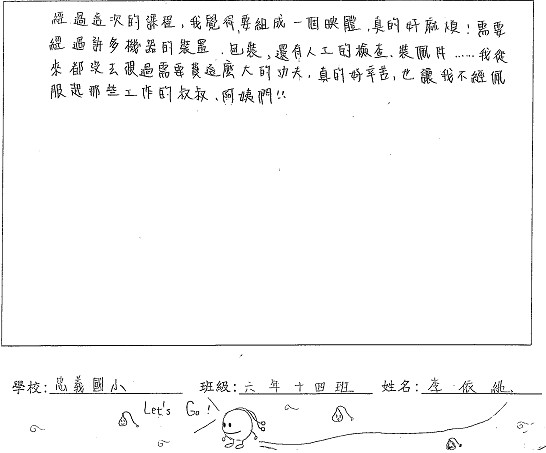 經過這次的課程,我覺得要組成一個映體,真的好麻煩!需要
經過許多機器的裝置、包裝,還有人工的檢查、裝佩件……我從
來都沒去想過需要費這麼大的功夫,真的好辛苦,也讓我不經佩
服起那些工作的叔叔、阿姨們!!
學校:忠義國小 班級:六年十四班 姓名:李依純
Let's Go!